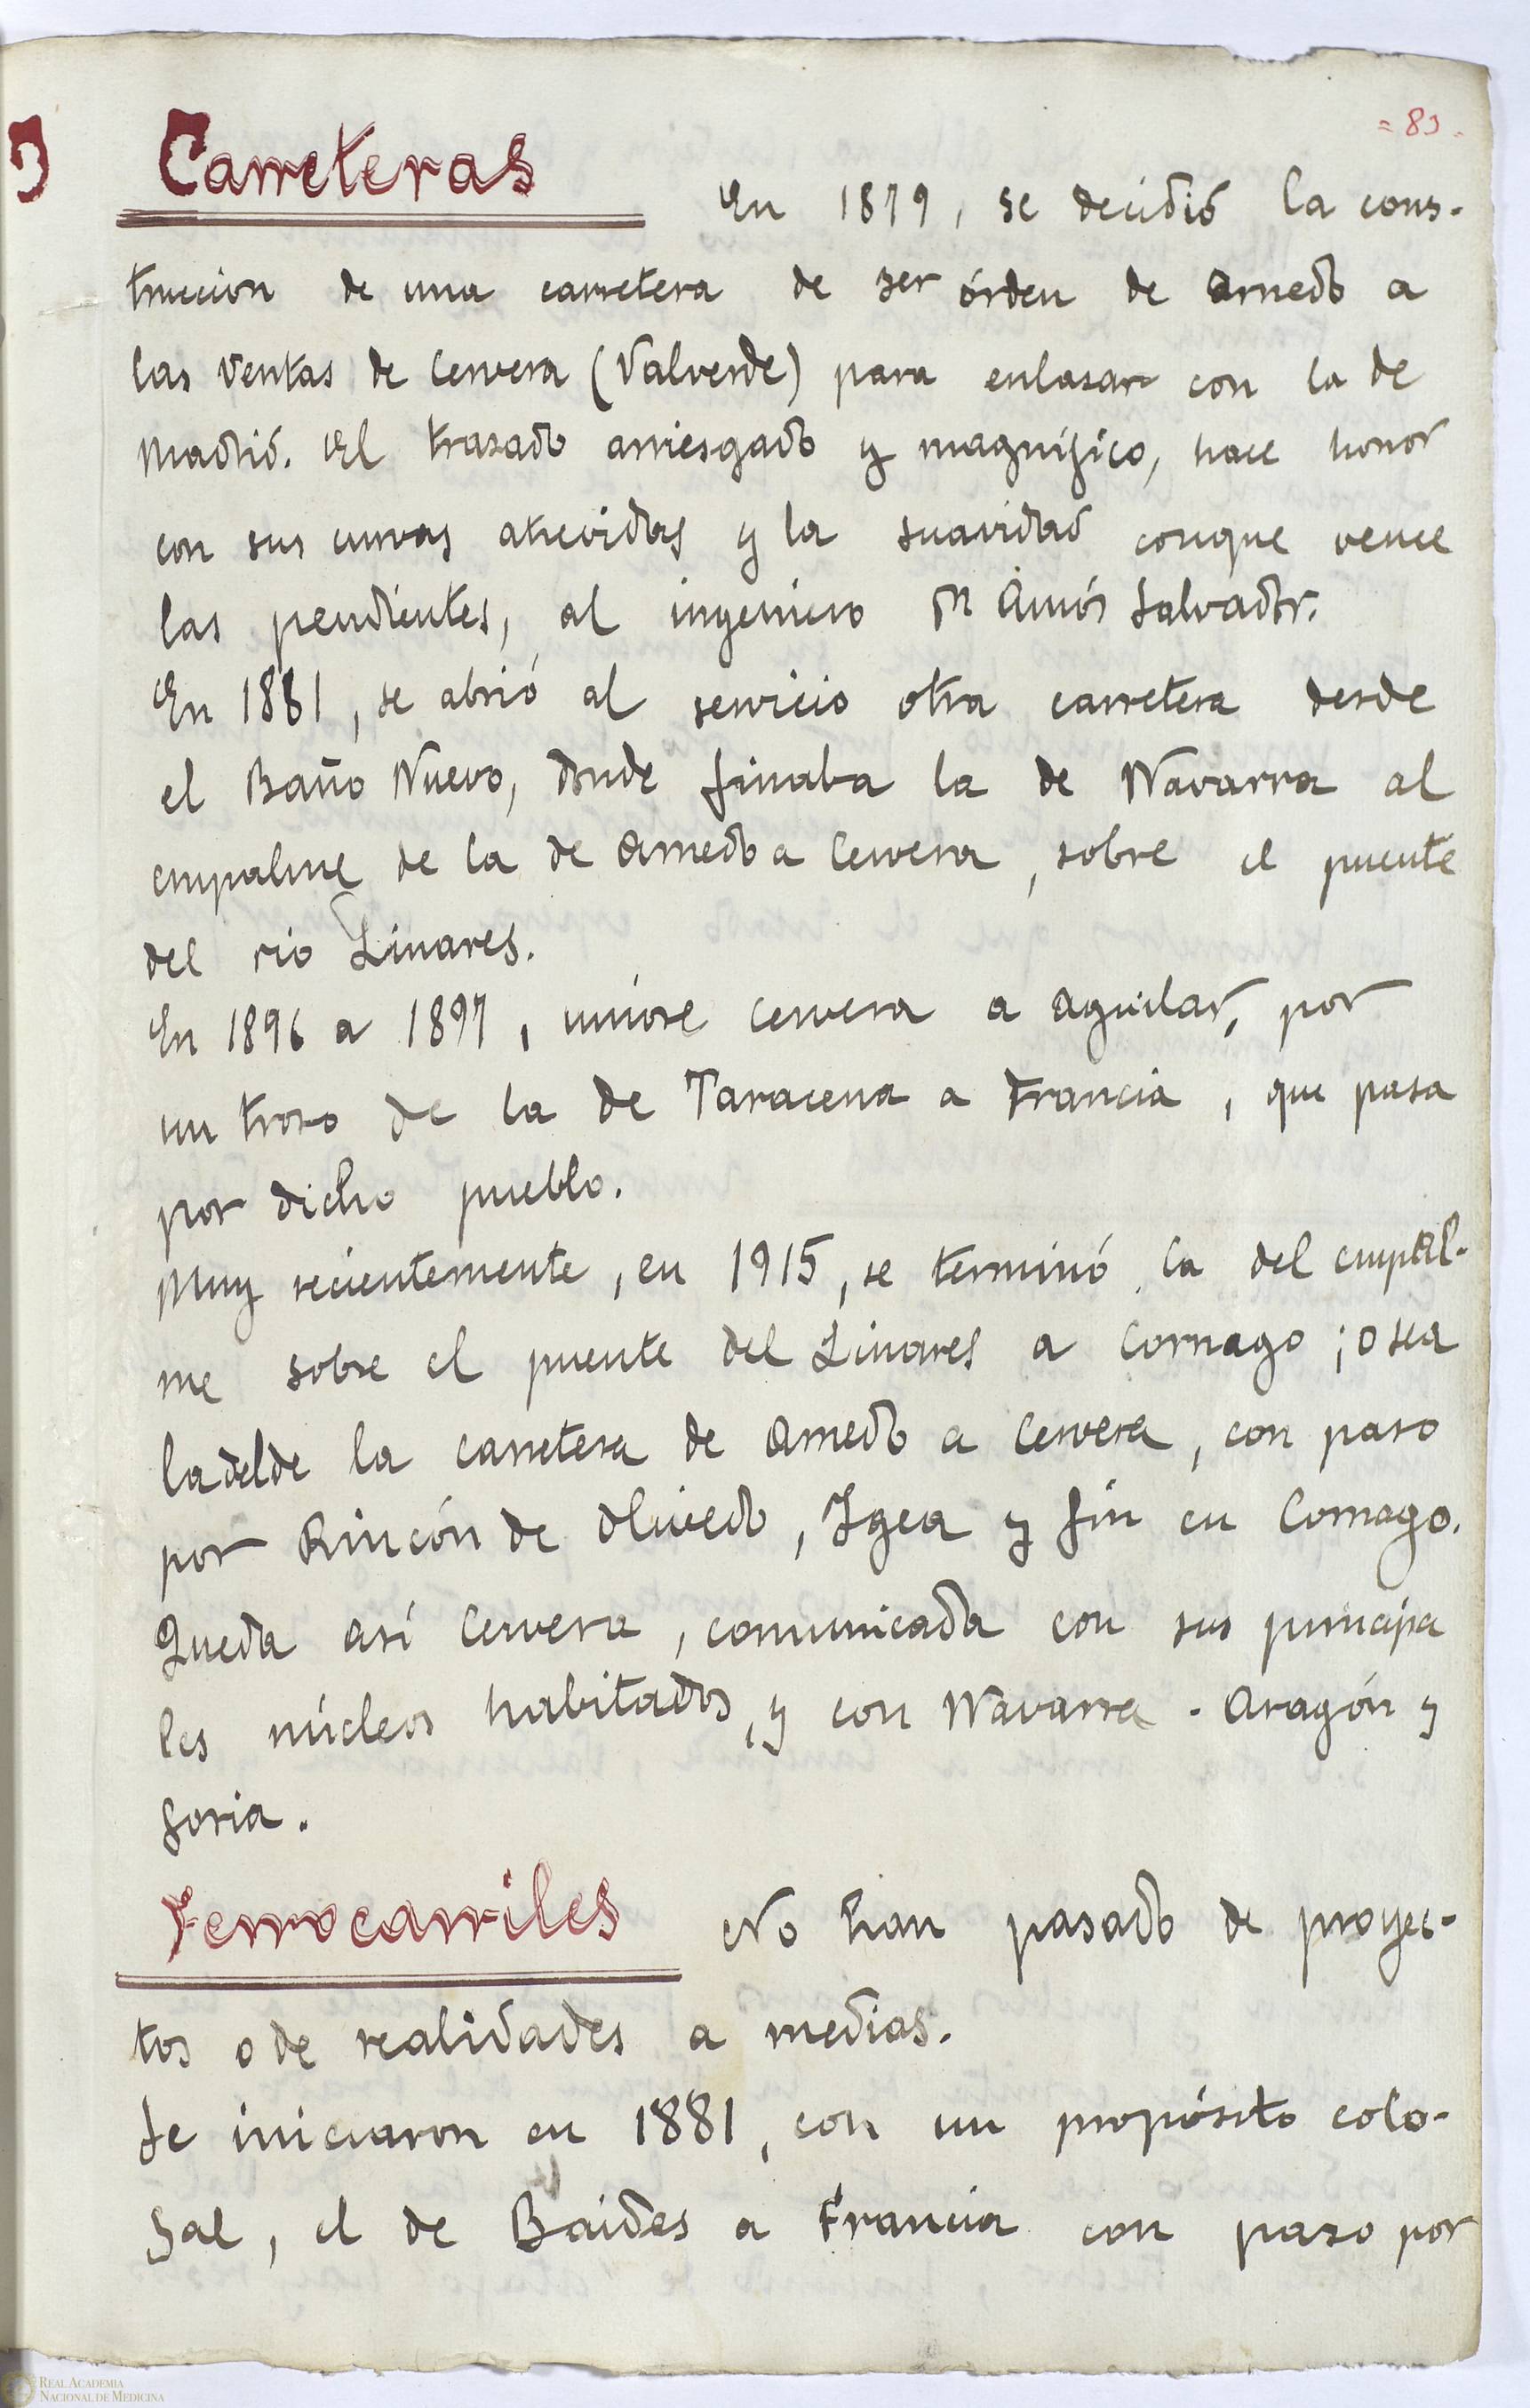 = 83 =
Carreteras En 1879, se decidió la cons-
truccion de una carretera de 3er órden de Arnedo a
las Ventas de Cervera (Valverde) para enlasar con la de
Madrid. El trasado arriesgado y magnífico, hace honor
con sus curvas atrevidas y la suavidad conque vence
las pendientes, al ingeniero Dn Amós Salvador.
En 1881, se abrió al servicio otra carretera desde
el Baño Nuevo, donde finaba la de Navarra al
empalme de la de Arnedo a Cervera, sobre el puente
del rio Linares.
En 1896 a 1897, uniose Cervera a Aguilar, por
un troso de la de Taracena a Francia, que pasa
por dicho pueblo.
Muy recientemente, en 1915, se terminó la del empal-
me sobre el puente del Linares a Cornago; o sea
la del de la carretera de Arnedo a Cervera, con paso
por Rincón de Olivedo, Igea y fin en Cornago.
Queda así Cervera, comunicada con sus principa
les núcleos habitados, y con Navarra - Aragón y
Soria.
Ferrocarriles No han pasado de proyec-
tos o de realidades a medias.
Se iniciaron en 1881, con un propósito colo-
sal, el de Baides a Francia con paso por
REAL ACADEMIA
NACIONAL DE MEDICINA